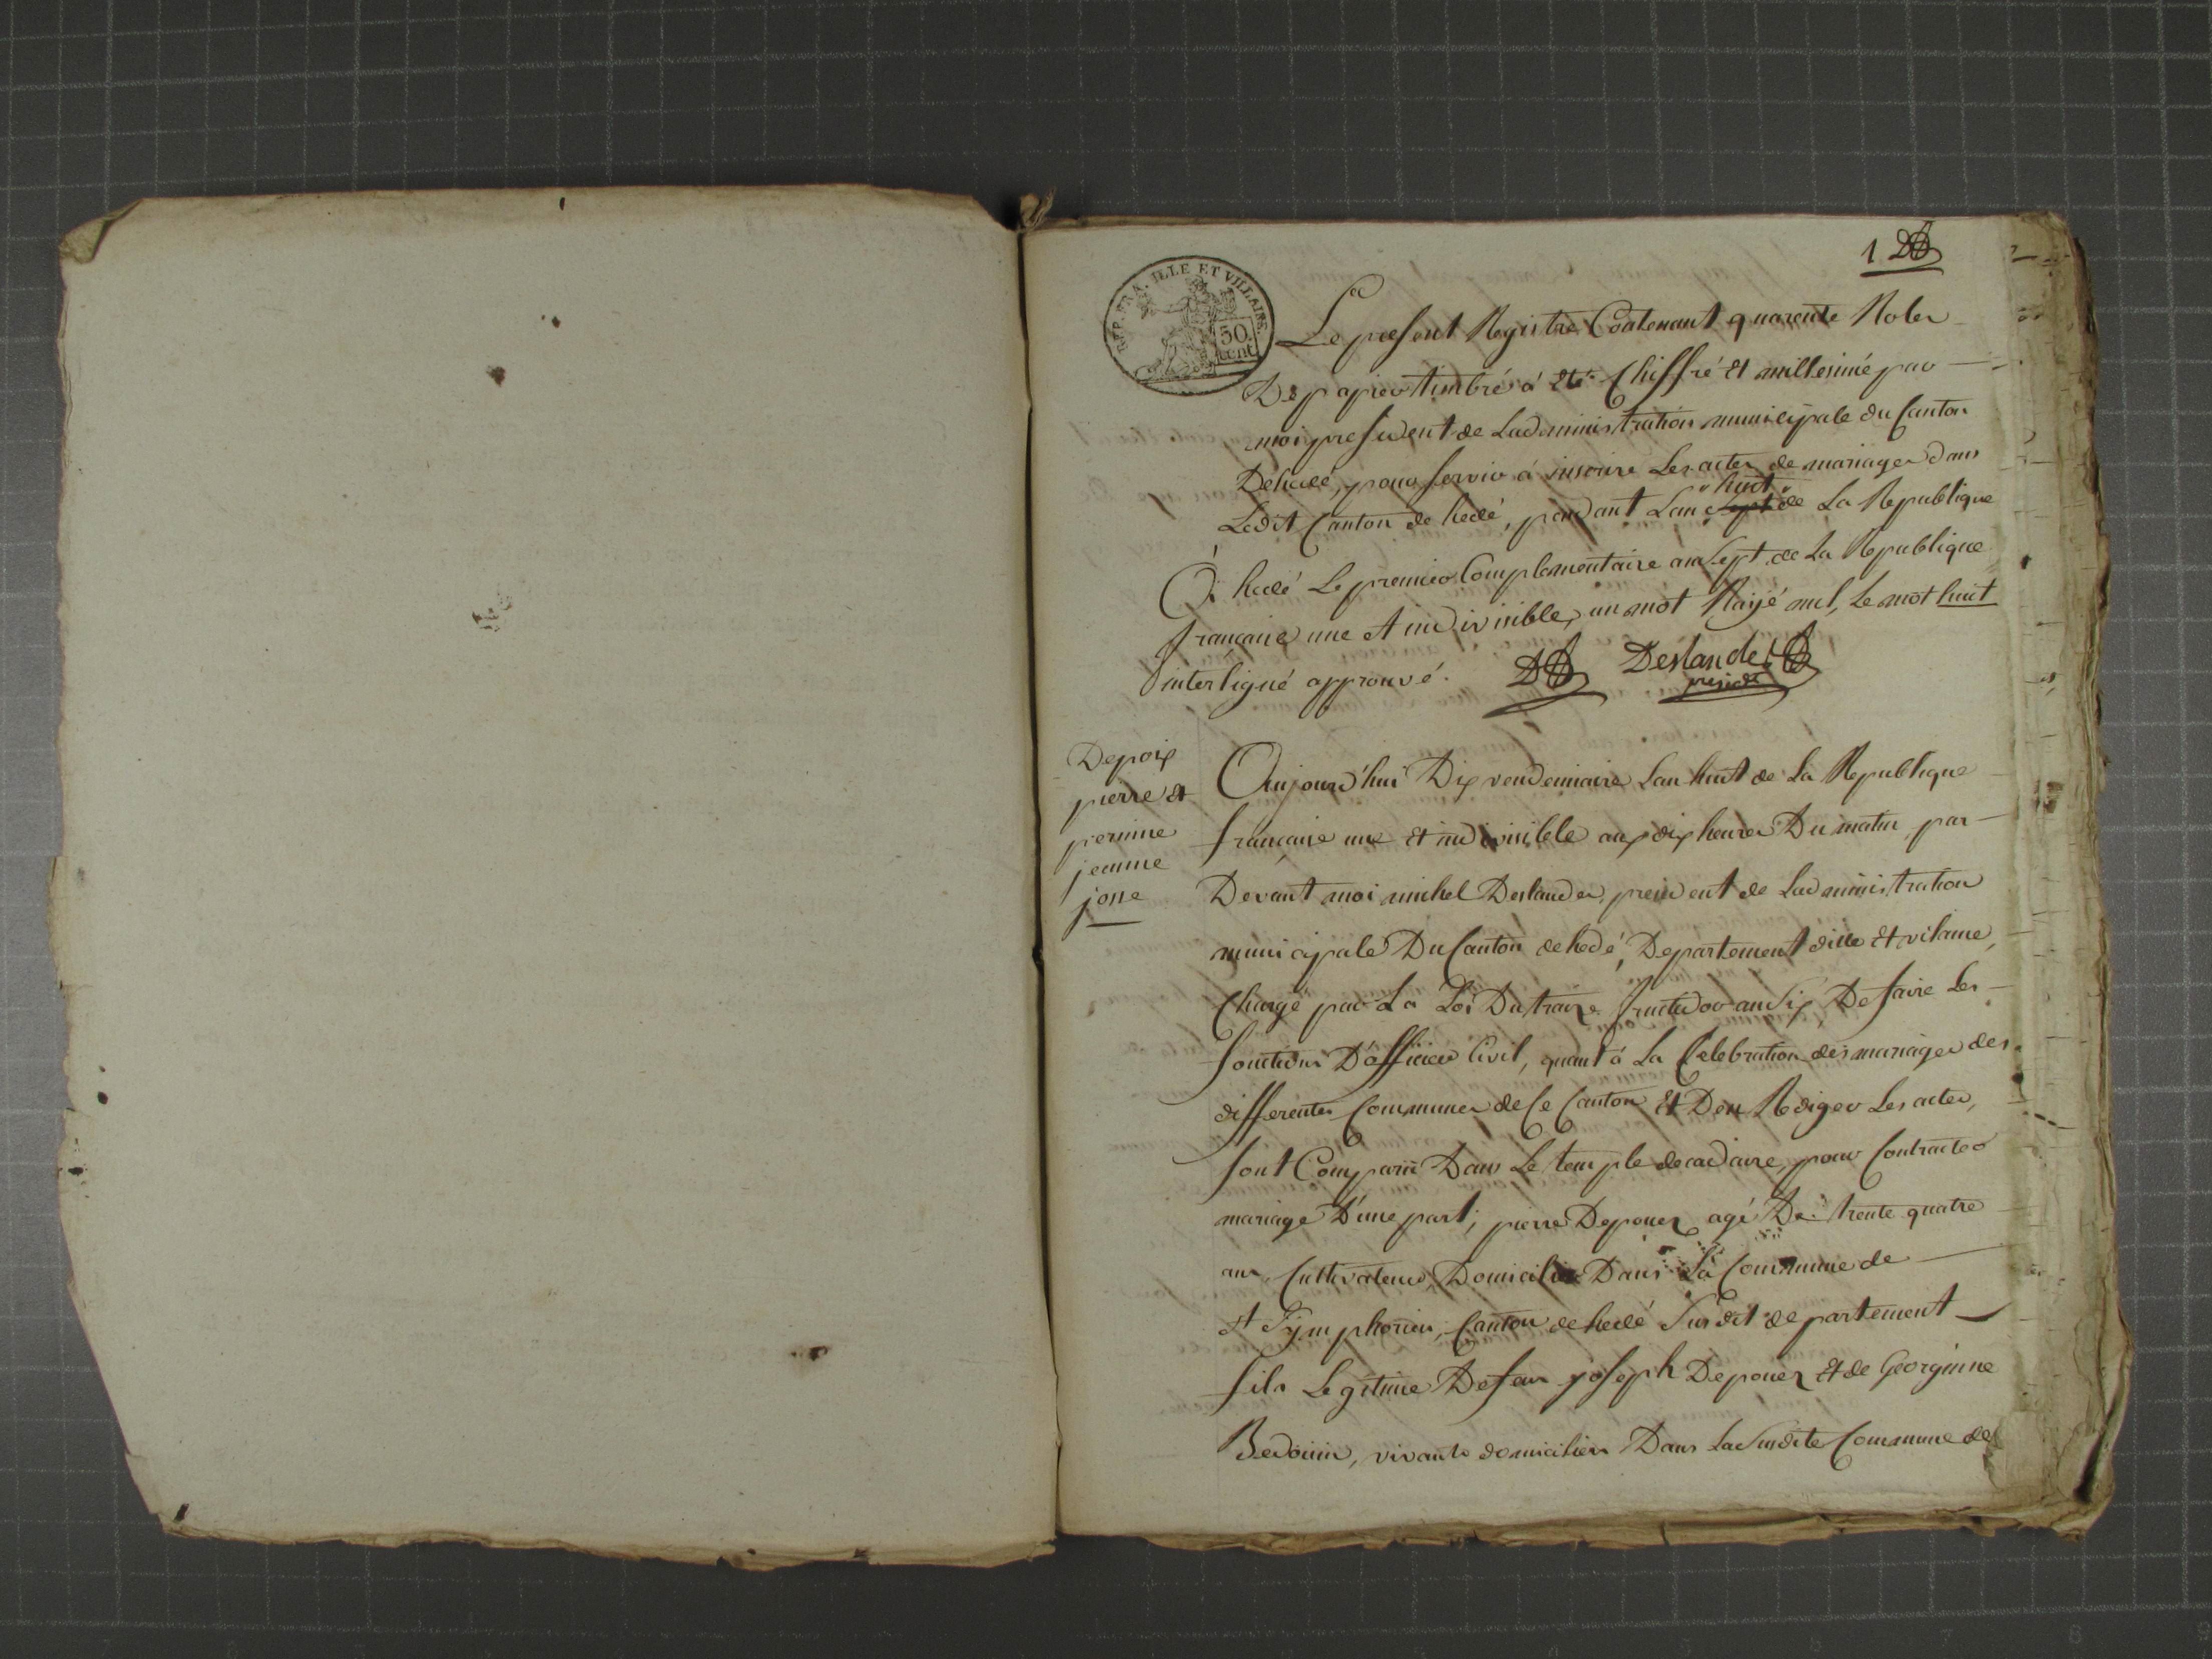 1
REP. FRA. ILLE ET VILLAINE.
50 cent
Le present Registre Contenant quarente Roles
De papier timbré a été Chiffré et millesimé par
moi president de Ladministration municipale du Canton
Dehedé, pour servir à inscrire Les actes de mariages dans
"huit"
Ledit Canton de hedé, pendant Lan sept de La Republique
À hedé Le premier Complementaire an sept de La Republique
française une et indivisible, un mot Raiyé nul, Le mot huit
interligné approuvé.
Deslandes
presidt
Depoix
pierre et
perinne
jeanne
josse
Aujourd'hui Dix vendemiaire Lan huit de La Republique
française une et indivisible aux dix heures Du matin par
Devant moi michel Deslandes, president de Ladministration
municipale Du Canton de hedé, Departement dille et vilaine,
Chargé par La Loi Du traize fructidor an six De faire Les
fonctions D'officier Civil, quant à La Celebration des mariages des
differentes Communes de Ce Canton Et Den Rediger Les actes,
sont Comparu Dans Le temple decadaire, pour Contracter
mariage D'une part, pierre Depouez agé De trente quatre
ans, Cultivateur, Domicilié Dans La Commune de
st Symphorien, Canton de hedé Susdit departement
fils Legitime De feu joseph Depouez et de Georginne
Bedouin, vivants domiciliés Dans La Susdite Commune de